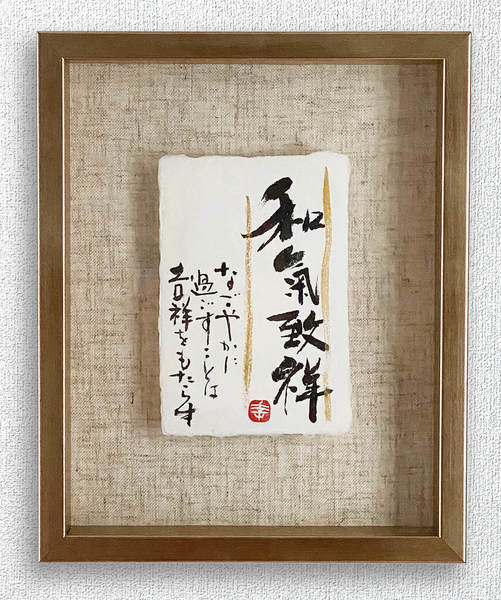 和氣致祥
なごやかに
過ごすことは
吉祥をもたらす